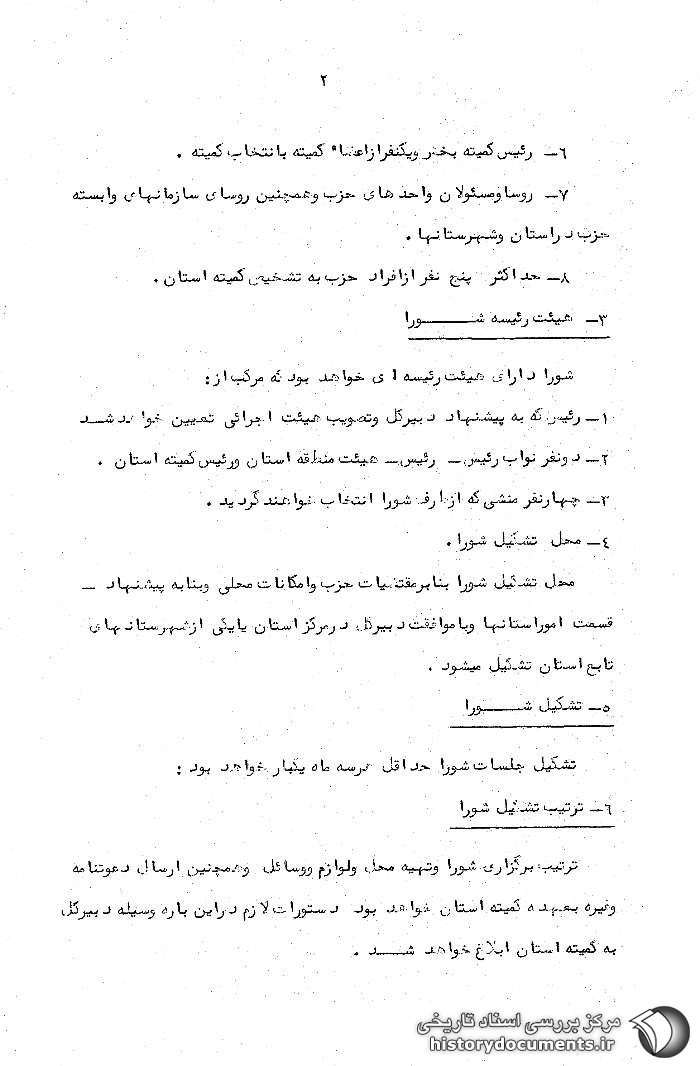 ۲
۶ـ رئیس کمیته بخش ویکنفر ازاعضاء کمیته با نتخاب کمیته .
۷ـ روسا ومسئولان واحد های حزب وهمچنین روسای سازمانهای وابسته
حزب در استان وشهرستانها .
۸ـ حداکثر پنج نفر ازافراد حزب به تشخیص کمیته استان .
۳ـ هیئت رئیسه شـــورا
شورا دارای هیئت رئیسه ای خواهد بود که مرکب از :
۱ـ رئیس که به پیشنهاد دبیرکل وتصویب هیئت اجرائی تعیین خواهد شـد
۲ـ دونفر نواب رئیس ـ رئیس ـ هیئت منطقه استان ورئیس کمیته استان .
۳ـ چهارنفر منشی که ازطرف شورا انتخاب خواهند گردید .
۴ـ محل تشکیل شورا .
محل تشکیل شورا بنابر مقتضیات حزب وامکانات محلی وبنابه پیشنهاد ـ
قسمت اموراستانها وباموافقت دبیرکل درمرکز استان یایکی ازشهرستانهای
تابع استان تشکیل میشود .
۵ـ تشکیل شـــورا
تشکیل جلسات شورا حداقل هرسه ماه یکبار خواهد بود :
۶ـ ترتیب تشکیل شورا
ترتیب برگزاری شورا وتهیه محل ولوازم ووسائل وهمچنین ارسال دعوتنامه
وغیره بعهده کمیته استان خواهد بود دستورات لازم دراین باره وسیله دبیرکل
به کمیته استان ابلاغ خواهد شــد .
مرکز بررسی اسناد تاریخی
historydocuments.ir